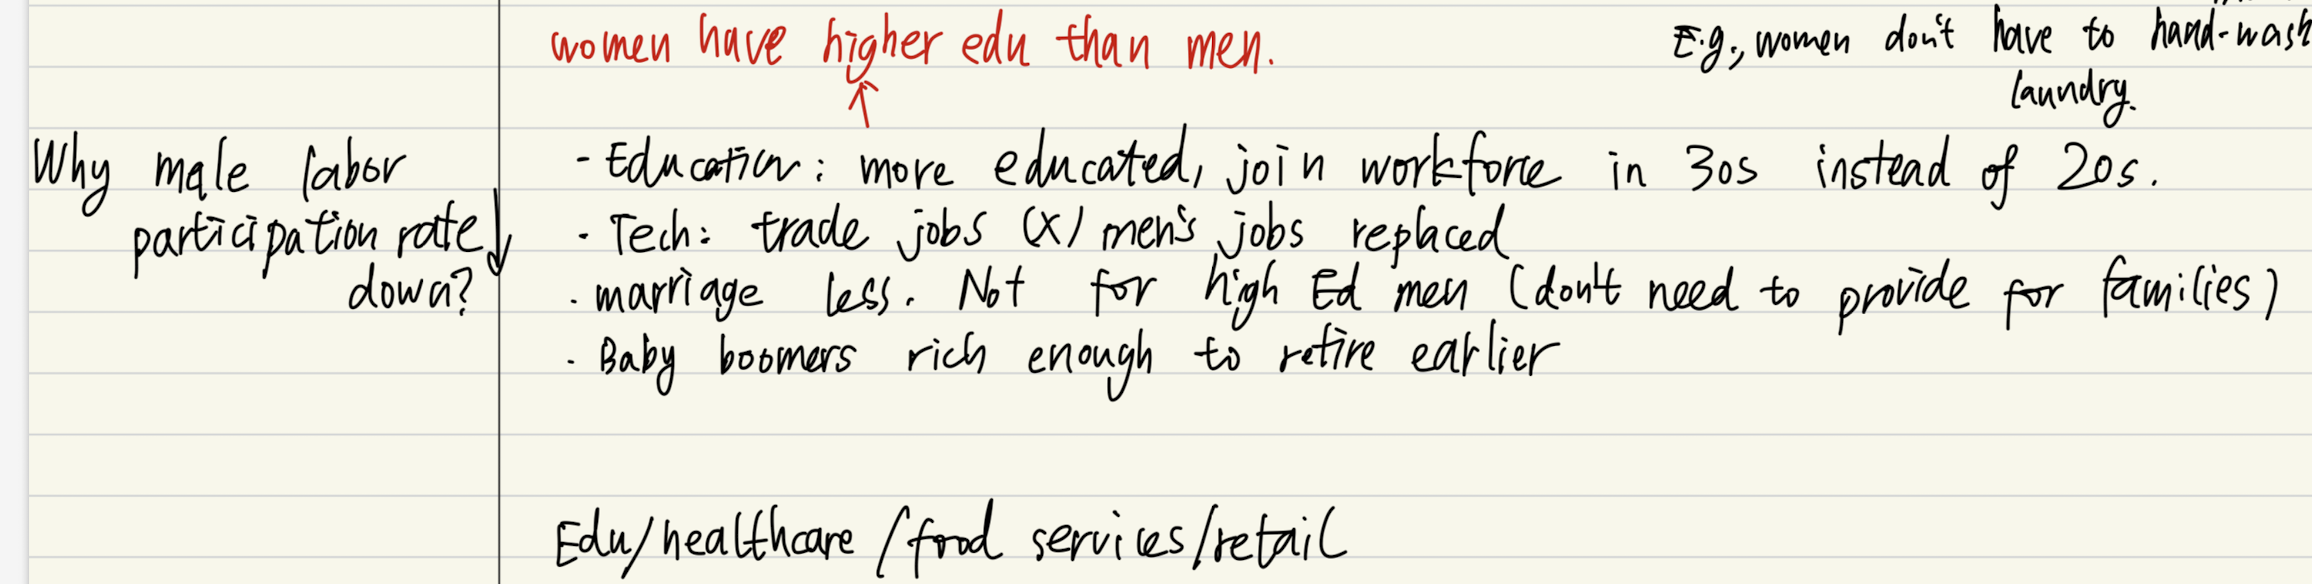 women have higher edu than men.
E.g., women don't have to hand-wash
laundry.
Why male labor
participation rate ↓
down?
- Education: more educated, join workforce in 30s instead of 20s.
- Tech: trade jobs (X) men's jobs replaced
· marriage less. Not for high Ed men (don't need to provide for families)
· Baby boomers rich enough to retire earlier
Edu/healthcare/food services/retail